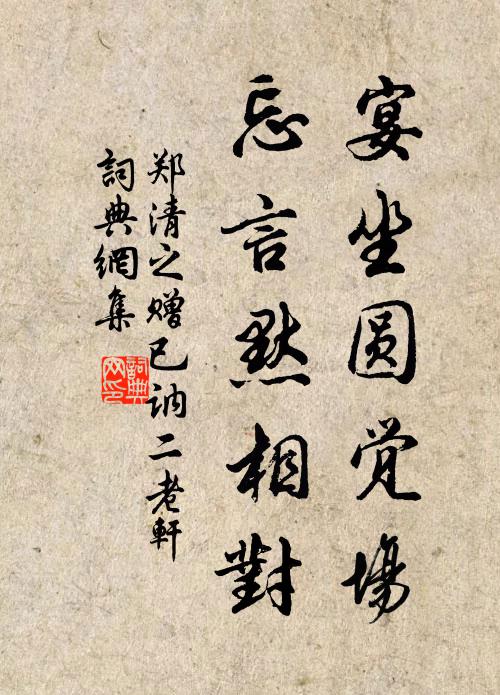 宴坐圆觉場
忘言默相對
郑清之赠已讷二老軒
詞典網集
詞典网印